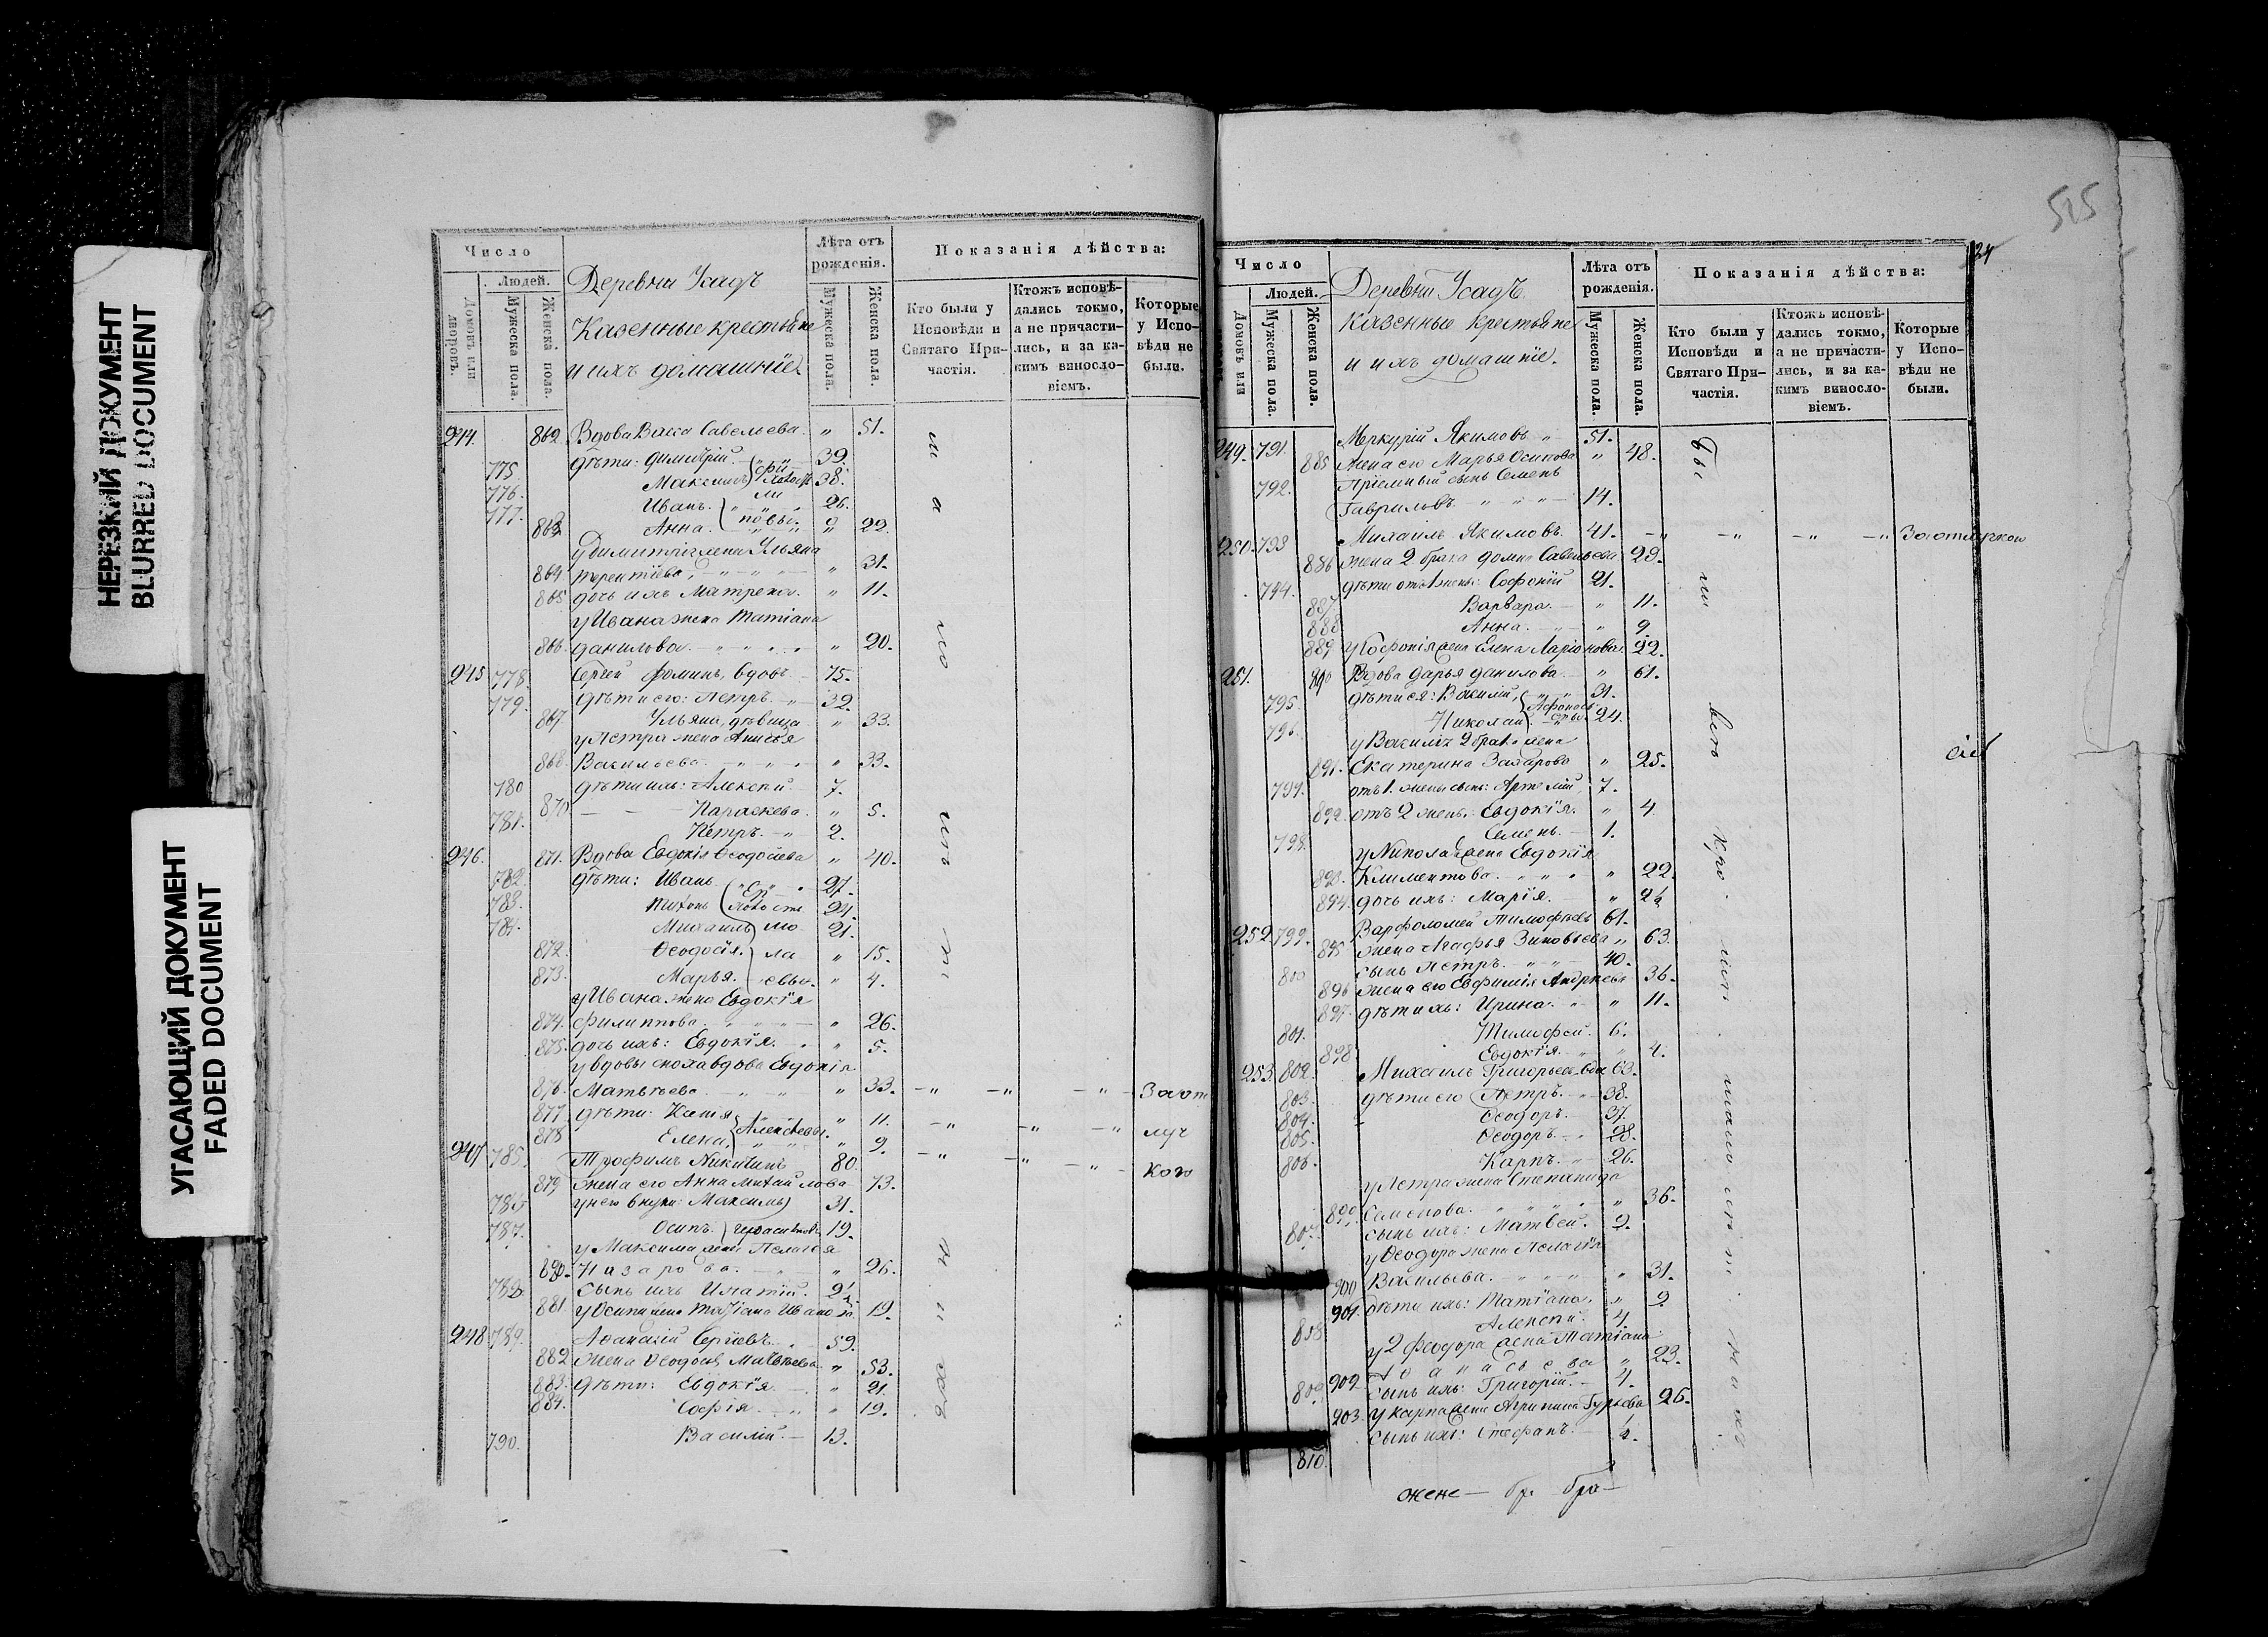 НЕРЕЗКИЙ ДОКУМЕНТ
BLURRED DOCUMENT
УГАСАЮЩИЙ ДОКУМЕНТ
FADED DOCUMENT
Число
Людей.
Домовъ или дворовъ.
Мужеска пола.
Женска пола.
Деревни Усадъ
Казенные крестьяне
и ихъ домашніе
Лѣта отъ рожденія.
Мужеска пола.
Женска пола.
Показанія дѣйства:
Кто были у Исповѣди и Святаго При-частія.
Ктожъ исповѣ-дались токмо, а не причасти-лись, и за ка-кимъ виносло-віемъ.
Которые у Испо-вѣди не были.
244. 862. Вдова Васса Савельева. " 51.
775 дѣти: Димитрій 39.
776. Максимъ 38.
777. Иванъ. 26.
863 Анна. " 22.
у Димитрія жена Ульяна
864 Терентіева, " 31.
865 дочь ихъ Матрена. " 11.
у Ивана жена Татіана
866. Данилова. " 20.
245 778. Сергѣй Фоминъ, вдовъ 75.
779. дѣти его: Петръ. 32.
867 Ульяна, дѣвица " 33.
у Петра жена Анисья
868. Васильева. " 33.
780 дѣти ихъ: Алексѣй 7.
870 Параскева. " 5.
781. Петръ. 2.
246. 871. Вдова Евдокія Ѳеодоѣева " 40.
782. дѣти: Иванъ 27.
783. Тихонъ 24.
784. Михаилъ 21.
872. Ѳеодосія. " 15.
873. Марья. " 4.
у Ивана жена Евдокія
874. Филиппова. " 26.
875. дочь ихъ: Евдокія. " 5.
у вдовы сноха вдова Евдокія
876. Матвѣева. " 33. Заот
877 дѣти: Ксенія " 11. луч
878 Елена, Алексѣевы. " 9. кою
247 785. Трофимъ Никитинъ 80.
879 жена его Анна Михайлова 73.
786 у него внуки: Максимъ 31.
787. Осипъ. Герасимовы 19.
у Максима жена Пелагея
880. Назарова. " 26.
788 Сынъ ихъ Игнатій. 2½
881. у Осипа жена Татіана Иванова 19.
248 789. Аѳанасій Сергѣевъ. 59.
882 жена Ѳеодосія Матвѣева " 53.
883. дѣти: Евдокія " 21.
884. Софія. " 19.
790. Василій. 13.
525
24
Число
Людей.
Домовъ или
Мужеска пола.
Женска пола.
Деревни Усадъ
казенные крестьяне
и ихъ домашніе.
Лѣта отъ рожденія.
Мужеска пола.
Женска пола.
Показанія дѣйства:
Кто были у Исповѣди и Святаго При-частія.
Ктожъ исповѣ-дались токмо, а не причасти-лись, и за ка-кимъ виносло-віемъ.
Которые у Испо-вѣди не были.
249. 791. Меркурій Якимовъ 51.
885 жена его Марья Осипова " 48.
792. Пріемный сынъ Семенъ
Гавриловъ. 14.
250. 793 Михаилъ Якимовъ. 41. Заотлучкою
886 жена 2 брака Домна Савельева 29.
794. дѣти отъ 1 жены: Софоній 21.
887 Варвара. " 11.
888 Анна. " 9
889 у Софонія жена Елена Ларіонова. 22.
251. 890 Вдова Дарья Данилова. " 61.
795. дѣти ея: Василій, 31.
796. Николай 24.
у Василія 2 брака жена
891. Екатерина Захарова " 25.
797. отъ 1 жены сынъ: Артемій, 7.
892. отъ 2 жены: Евдокія. " 4.
798. Семенъ. 1.
у Николая жена Евдокія
893. Климентова. " 22.
894. дочь ихъ: Марія. " 2½
252. 799. Варфоломей Тимофѣевъ 61.
895 жена Агафья Зиновьева " 63.
800 сынъ Петръ. 40.
896 жена его Евфимія Андреева 36.
897. дѣти ихъ: Ирина. " 11.
801. Тимофей. 6.
898 Евдокія. " 4.
253. 802. Михаилъ Григорьевъ вдов 63.
803. дѣти его Петръ. 38.
804. Ѳеодоръ. 37.
805. Ѳеодоръ. 28.
806. Карпъ. 26.
у Петра жена Степанида
899. Семенова. " 36.
807. сынъ ихъ: Матвей. 9.
у Ѳеодора жена Пелагія
900 Васильева. " 31.
901. дѣти ихъ: Татіана. " 9
808. Алексѣй. 4.
у 2 Феодора жена Татіана
902 Аѳанасьева " 23.
809. сынъ ихъ: Григорій. 4.
903. у Карпа жена Агрипина Гурьева 26.
810. сынъ ихъ: Стефанъ.